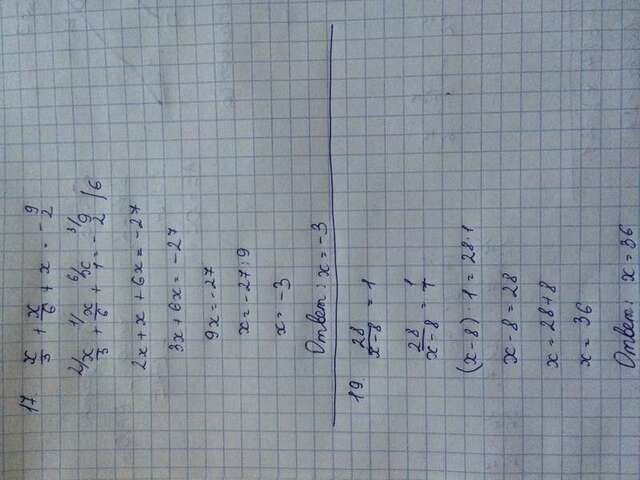 17. x/3 + x/6 + x = -9/2
2/ x/3 + 1/ x/6 + 6/ x/1 = - 3/ 9/2 /6
2x + x + 6x = -27
3x + 6x = -27
9x = -27
x = -27:9
x = -3
Ответ: x = -3
19. 28/(x-8) = 1
28/(x-8) = 1/1
(x-8)·1 = 28·1
x-8 = 28
x = 28+8
x = 36
Ответ: x = 36